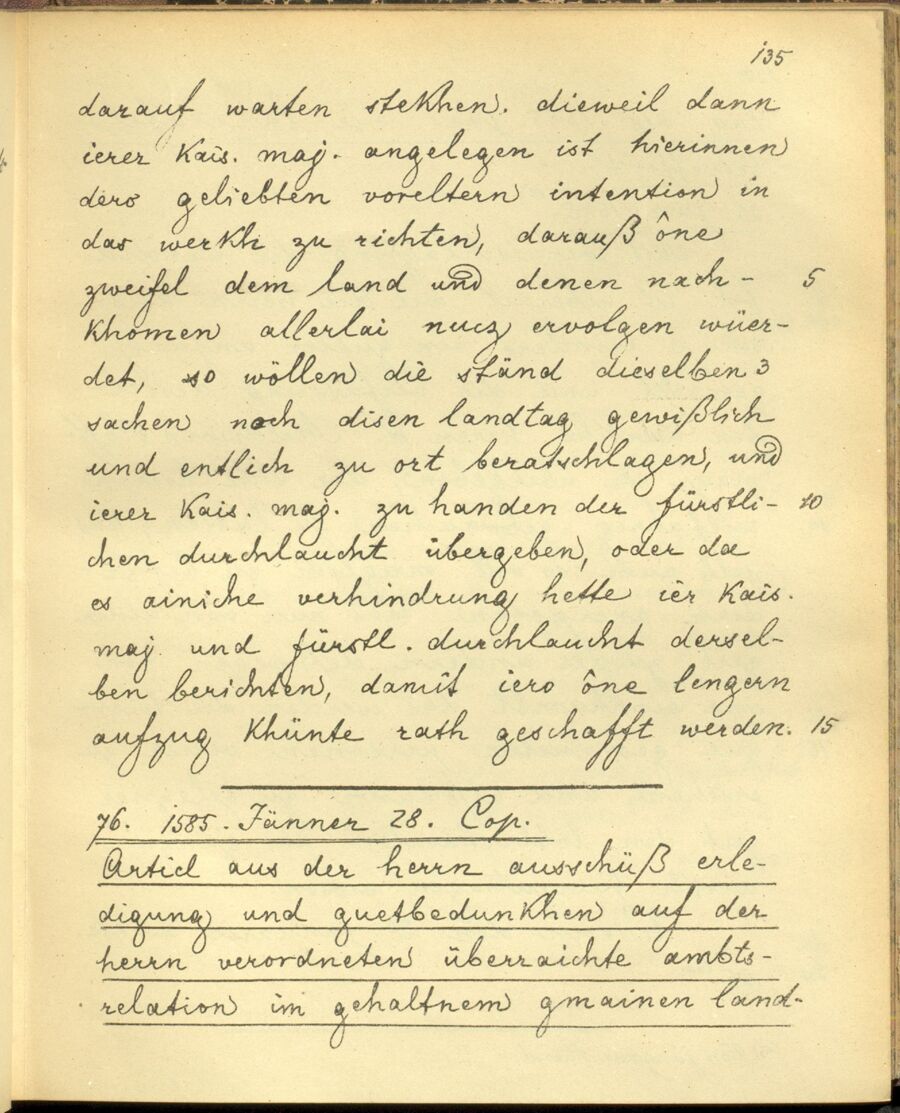 135
darauf warten stekhen. dieweil dann
ierer Kais. maj. angelegen ist hierinnen
dero geliebten voreltern intention in
das werkh zu richten, darauß ône
zweifel dem land und denen nach- 5
khomen allerlai nucz ervolgen wüer-
det, so wöllen die ständ dieselben 3
sachen noch disen landtag gewißlich
und entlich zu ort beratschlagen, und
ierer Kais. maj. zu handen der fürstli- 10
chen durchlaucht übergeben, oder da
es ainiche verhindrung hette ier Kais.
maj und fürstl. durchlaucht dersel-
ben berichten, damit iero ône lengern
aufzug khünte rath geschafft werden. 15
76. 1585. Jänner 28. Cop.
Articl aus der herrn ausschüß erle-
digung und guetbedunkhen auf der
herrn verordneten überraichte ambts-
relation im gehaltnem gmainen land-